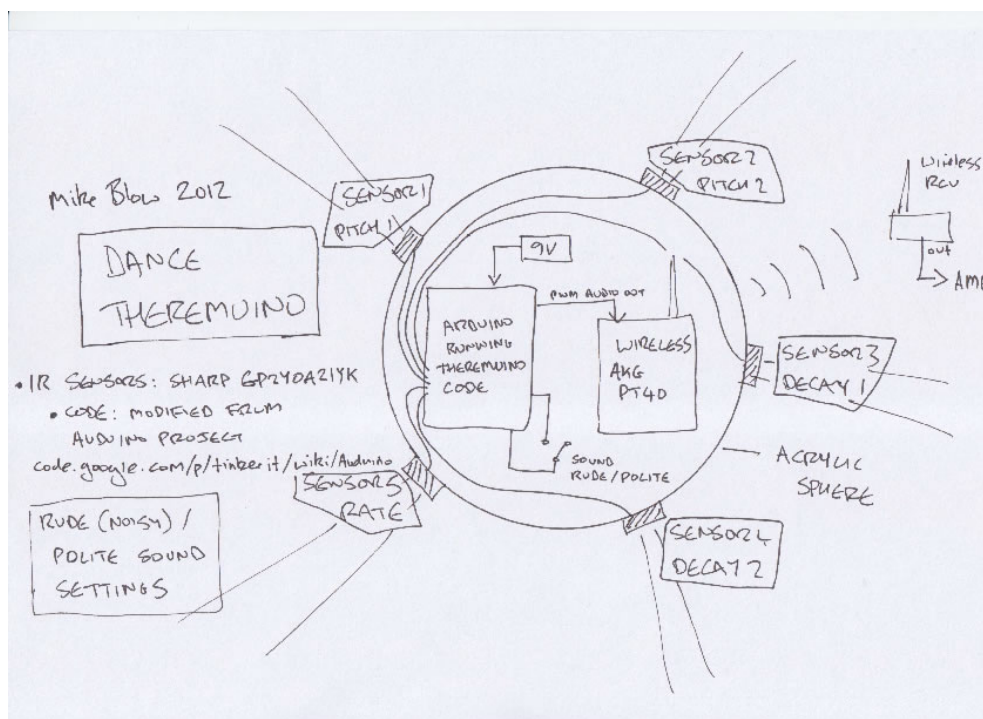 Mike Blow 2012
DANCE
THEREMUINO
• IR SENSORS: SHARP GP2Y0A21YK
• CODE: MODIFIED FROM
AUDUINO PROJECT
code.google.com/p/tinkerit/wiki/Auduino
RUDE (NOISY) /
POLITE SOUND
SETTINGS
SENSOR 1
PITCH 1
SENSOR 2
PITCH 2
9V
PWM AUDIO OUT
ARDUINO
RUNNING
THEREMUINO
CODE
WIRELESS
AKG
PT40
SOUND
RUDE/POLITE
SENSOR 3
DECAY 1
ACRYLIC
SPHERE
SENSOR 4
DECAY 2
SENSOR 5
RATE
Wireless
Rcv
out
AM